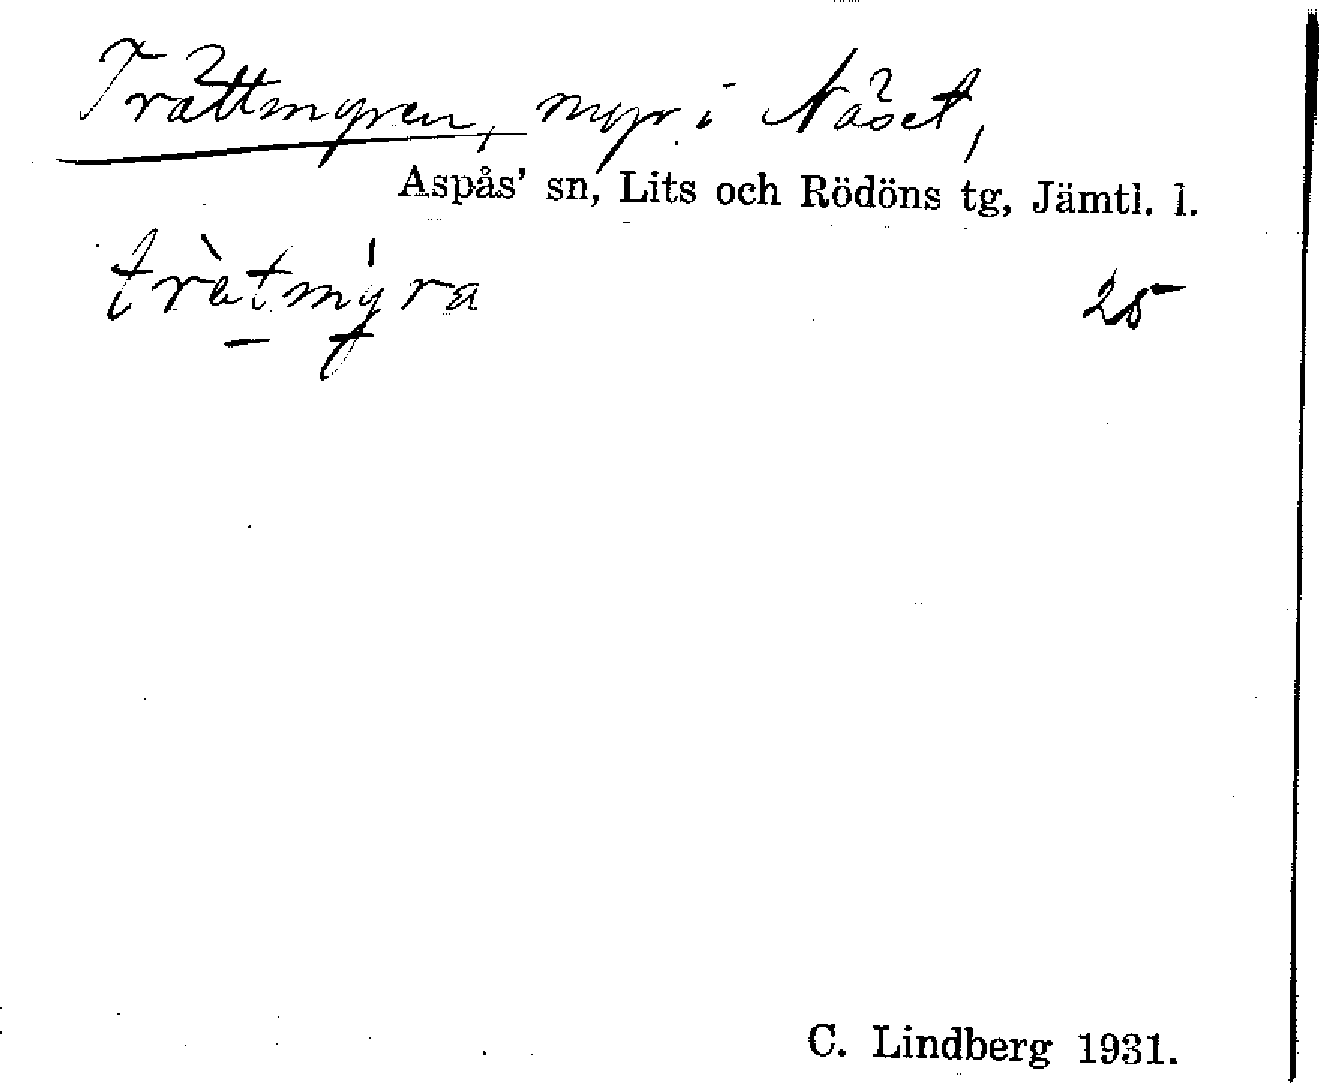 Trättmyren, myr i Näset,
Aspås' sn, Lits och Rödöns tg, Jämtl. l.
trètmýra 25
C. Lindberg 1931.